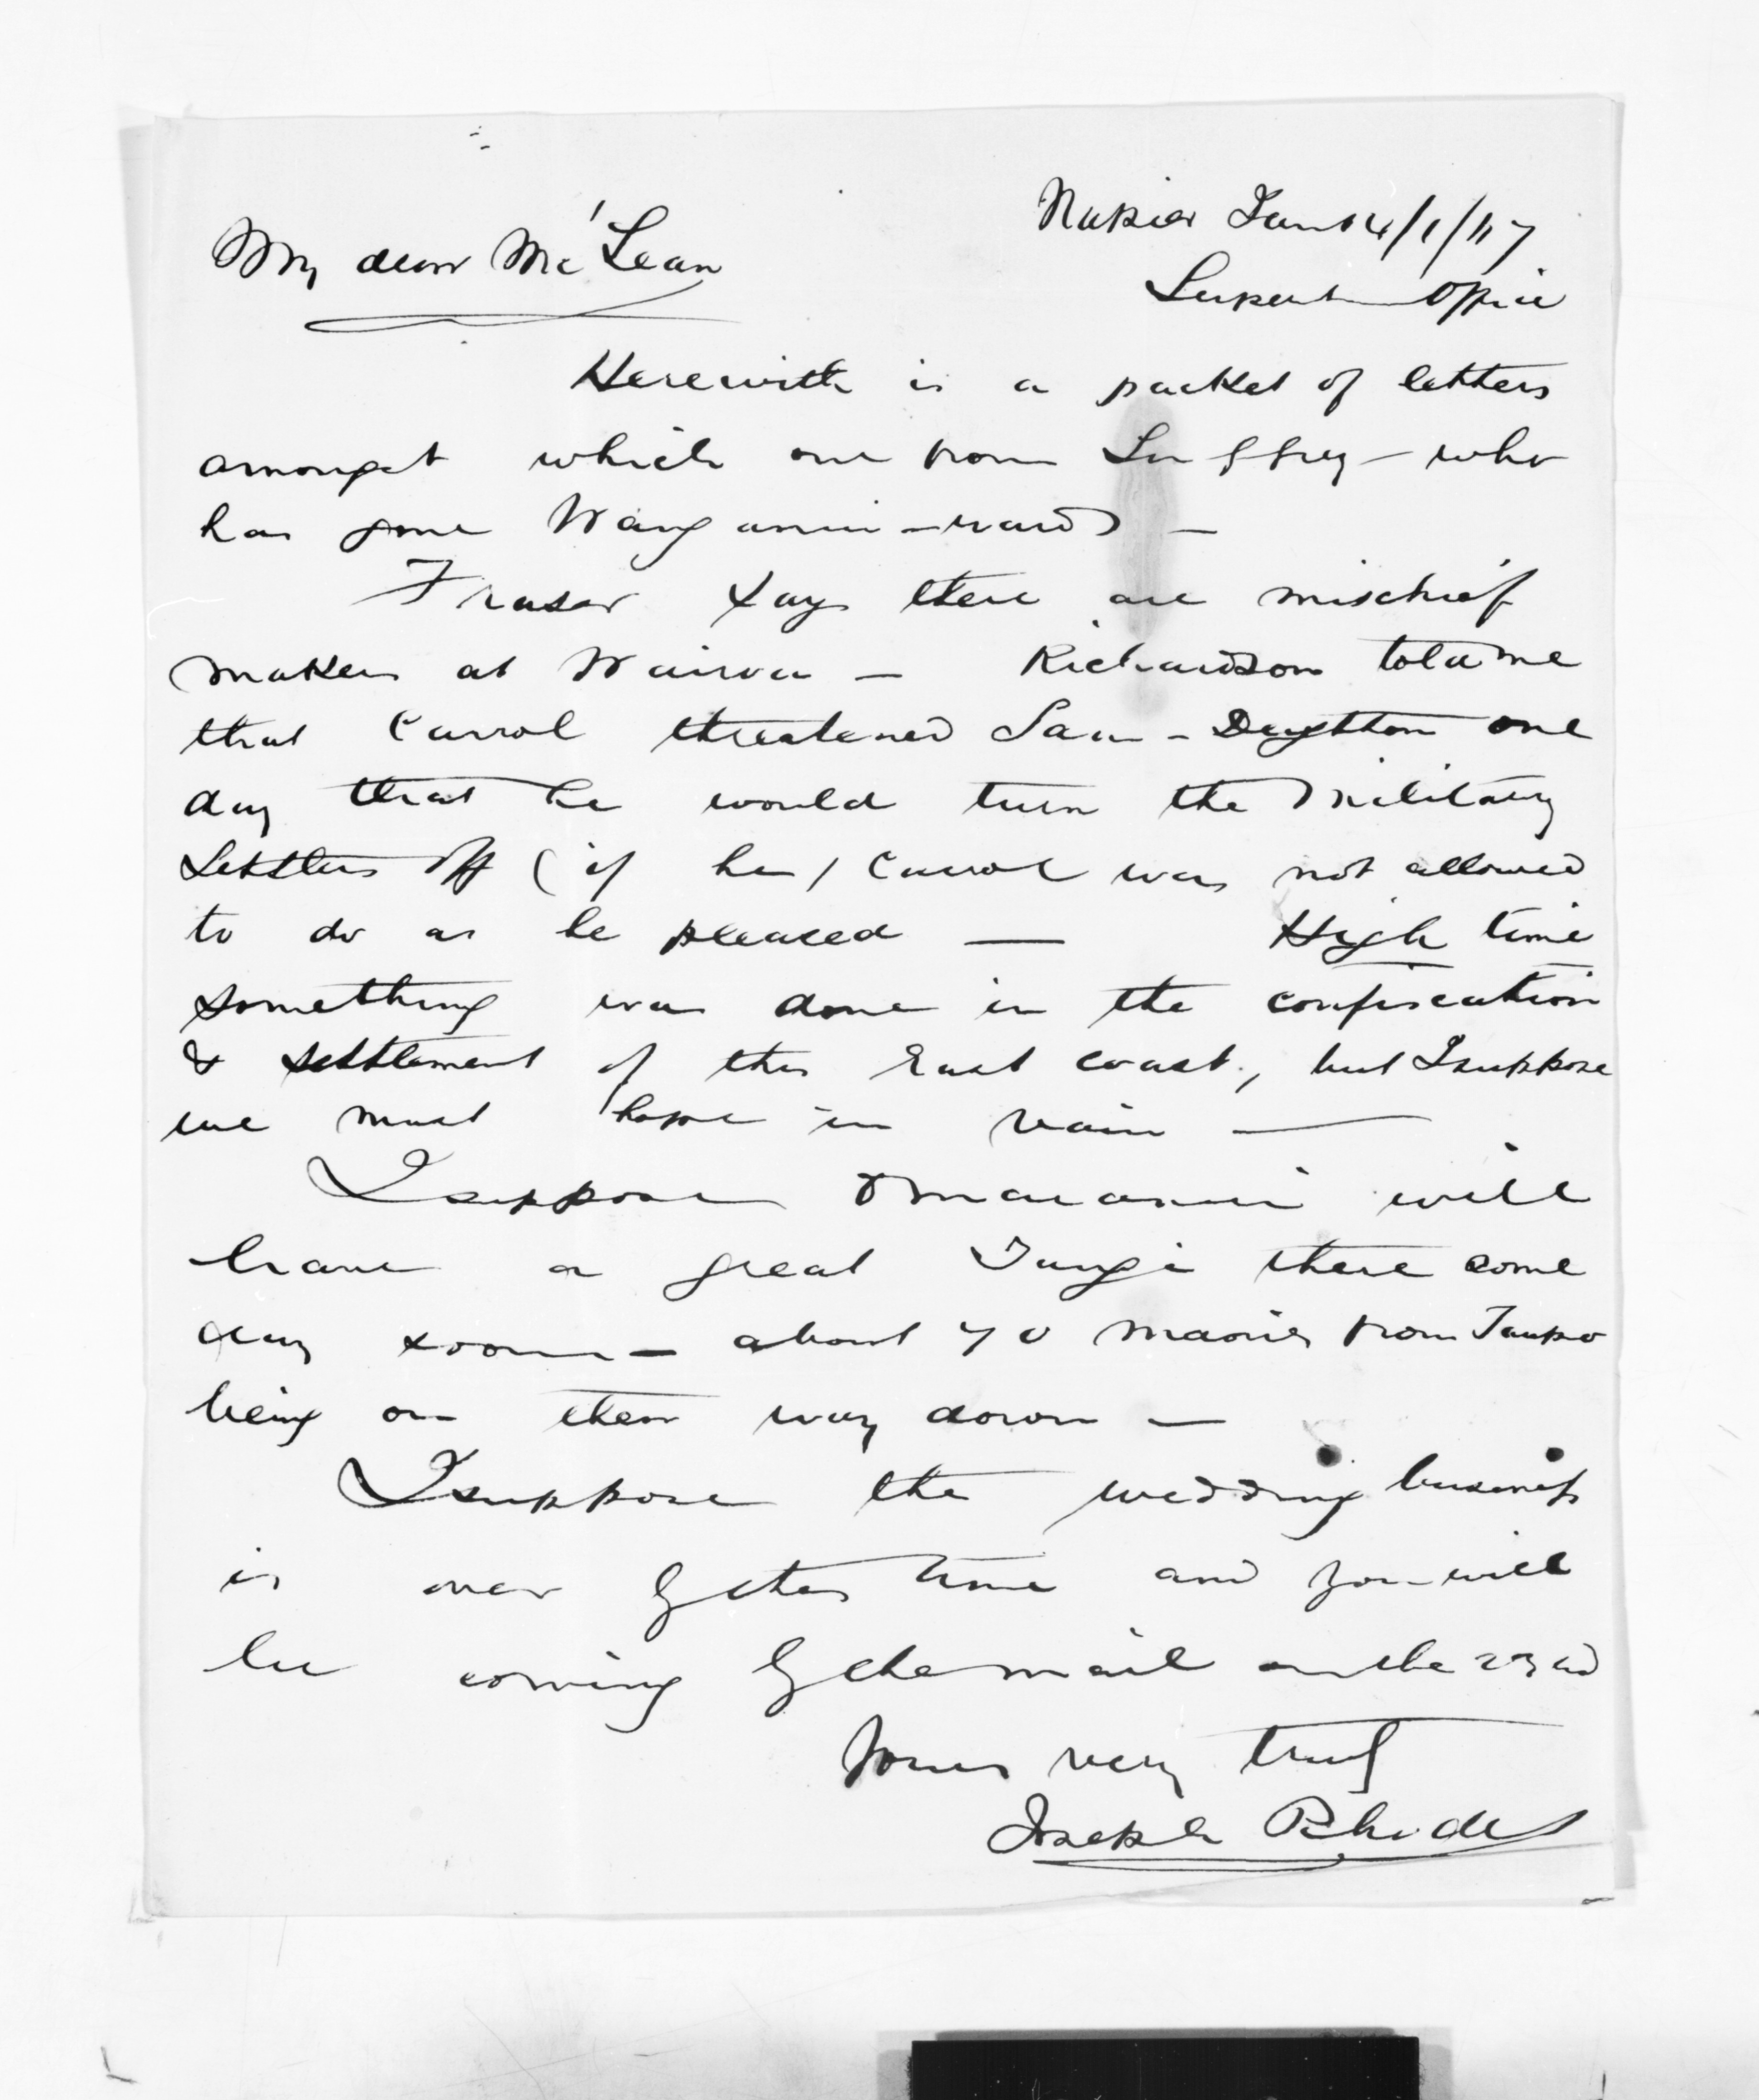 Napier Jan 14/1/67
My dear Mc'Lean
Superts Office
Herewith is a packet of letters
amongst which one from who
has gone Wanganui-wards —
Fraser says there are mischief
makers at Wairoa — Richardson told me
that Carrol threatened Sam - Deighton one
day that he would turn the Military
Settlers off (if he / Carrol was not allowed
to do as he pleased — High time
something was done in the confiscation
& settlement of this East coast, but I suppose
we must hope in vain —
I suppose Omaranui will
have a great Tangi there some
day soon — about 70 maories from Taupo
being on their way down —
I suppose the wedding business
is over by this time and you will
be coming by the mail on the 23rd
Yours very truly
Joseph Rhodes